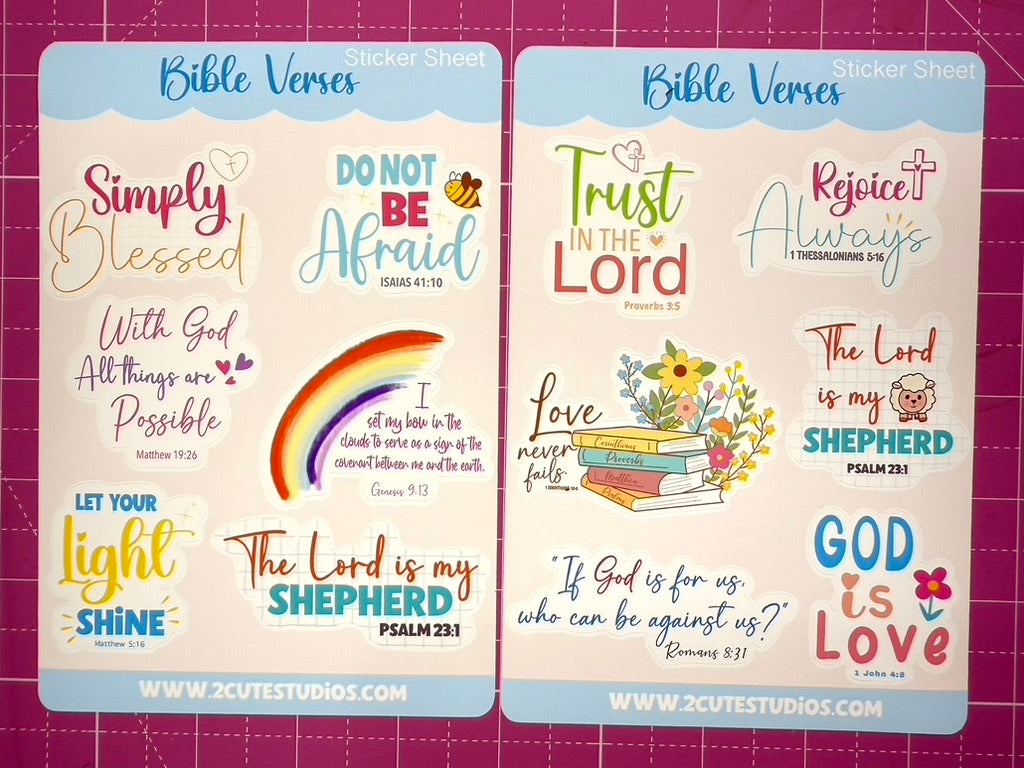 Sticker Sheet
Bible Verses
Simply
Blessed
DO NOT
BE
Afraid
ISAIAS 41:10
With God
All things are
Possible
Matthew 19:26
I
set my bow in the
clouds to serve as a sign of the
covenant between me and the earth.
Genesis 9:13
LET YOUR
Light
SHiNE
Matthew 5:16
The Lord is my
SHEPHERD
PSALM 23:1
WWW.2CUTESTUDIOS.COM
Sticker Sheet
Bible Verses
Trust
IN THE
Lord
Proverbs 3:5
Rejoice
Always
1 THESSALONIANS 5:16
Love
never
fails
Corinthians 1
Proverbs
Matthew
Psalm
The Lord
is my
SHEPHERD
PSALM 23:1
"If God is for us,
who can be against us?"
Romans 8:31
GOD
is
Love
1 John 4:8
WWW.2CUTESTUDIOS.COM